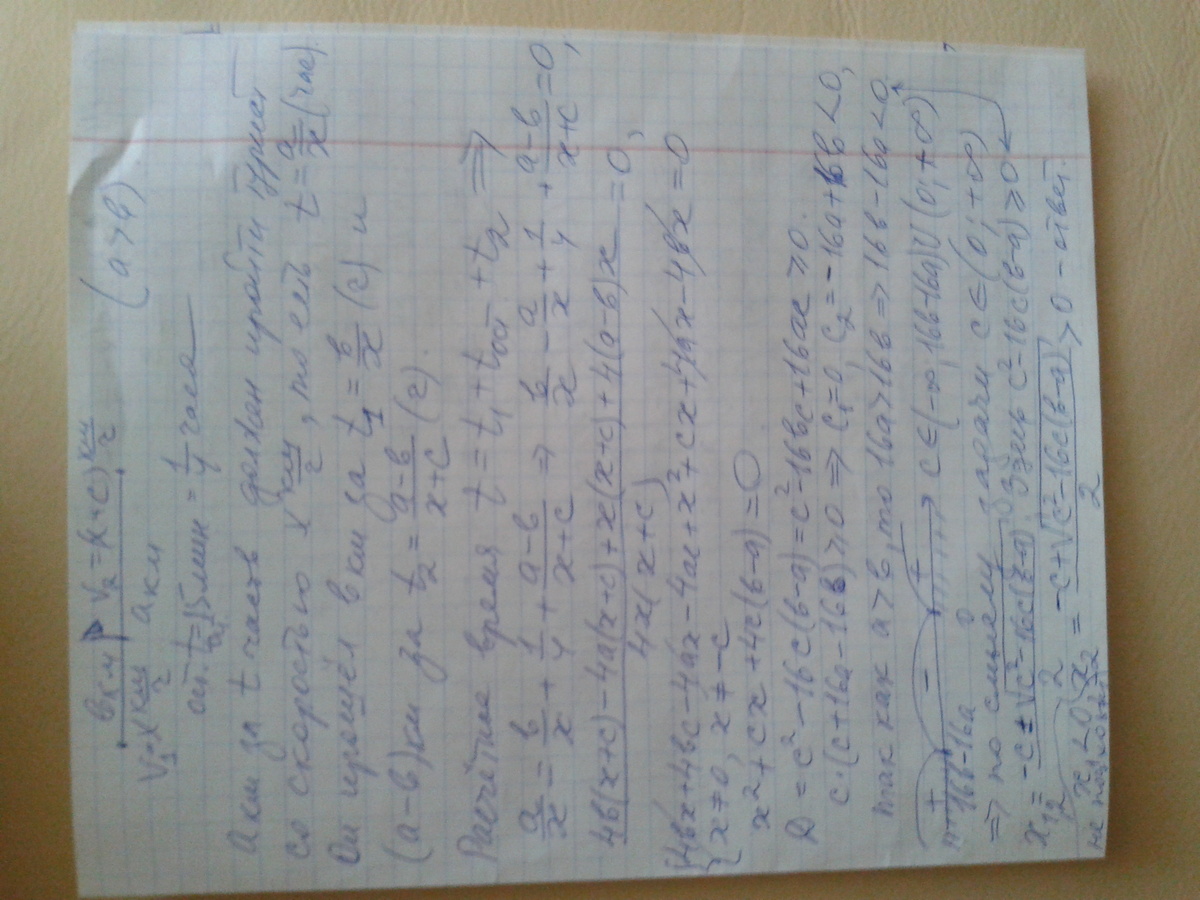 в км V₂=(x+c) км/ч
V₁=x км/ч a км (a>b)
ост. t=15 мин = 1/4 часа
a км за t часов должен пройти турист
со скоростью x км/ч, то есть t = a/x (час).
Он прошёл b км за t₁ = b/x (ч) и
(a-b) км за t₂ = (a-b)/(x+c) (ч).
Расчётное время t = t₁ + t ост + t₂ ⇒
a/x = b/x + 1/4 + (a-b)/(x+c) ⇒ b/x - a/x + 1/4 + (a-b)/(x+c) = 0,
(4b(x+c) - 4a(x+c) + x(x+c) + 4(a-b)x)/(4x(x+c)) = 0,
{4bx+4bc-4ax-4ac+x²+cx+4ax-4bx=0
{x≠0, x≠-c
x²+cx+4c(b-a)=0
D = c²-16c(b-a) = c²-16bc+16ac ≥ 0.
c·(c+16a-16b) ≥ 0 ⇒ c₁=0, c₂=-16a+16b<0,
так как a>b, то 16a>16b ⇒ 16b-16a<0.
+ - + c∈(-∞; 16b-16a)∪(0; +∞)
16b-16a 0
⇒ по смыслу задачи c∈(0; +∞)
x₁,₂ = (-c±√(c²-16c(b-a)))/2. Здесь c²-16c(b-a)≥0
x₁<0 x₂ = (-c+√(c²-16c(b-a)))/2 > 0 - ответ.
не подходит